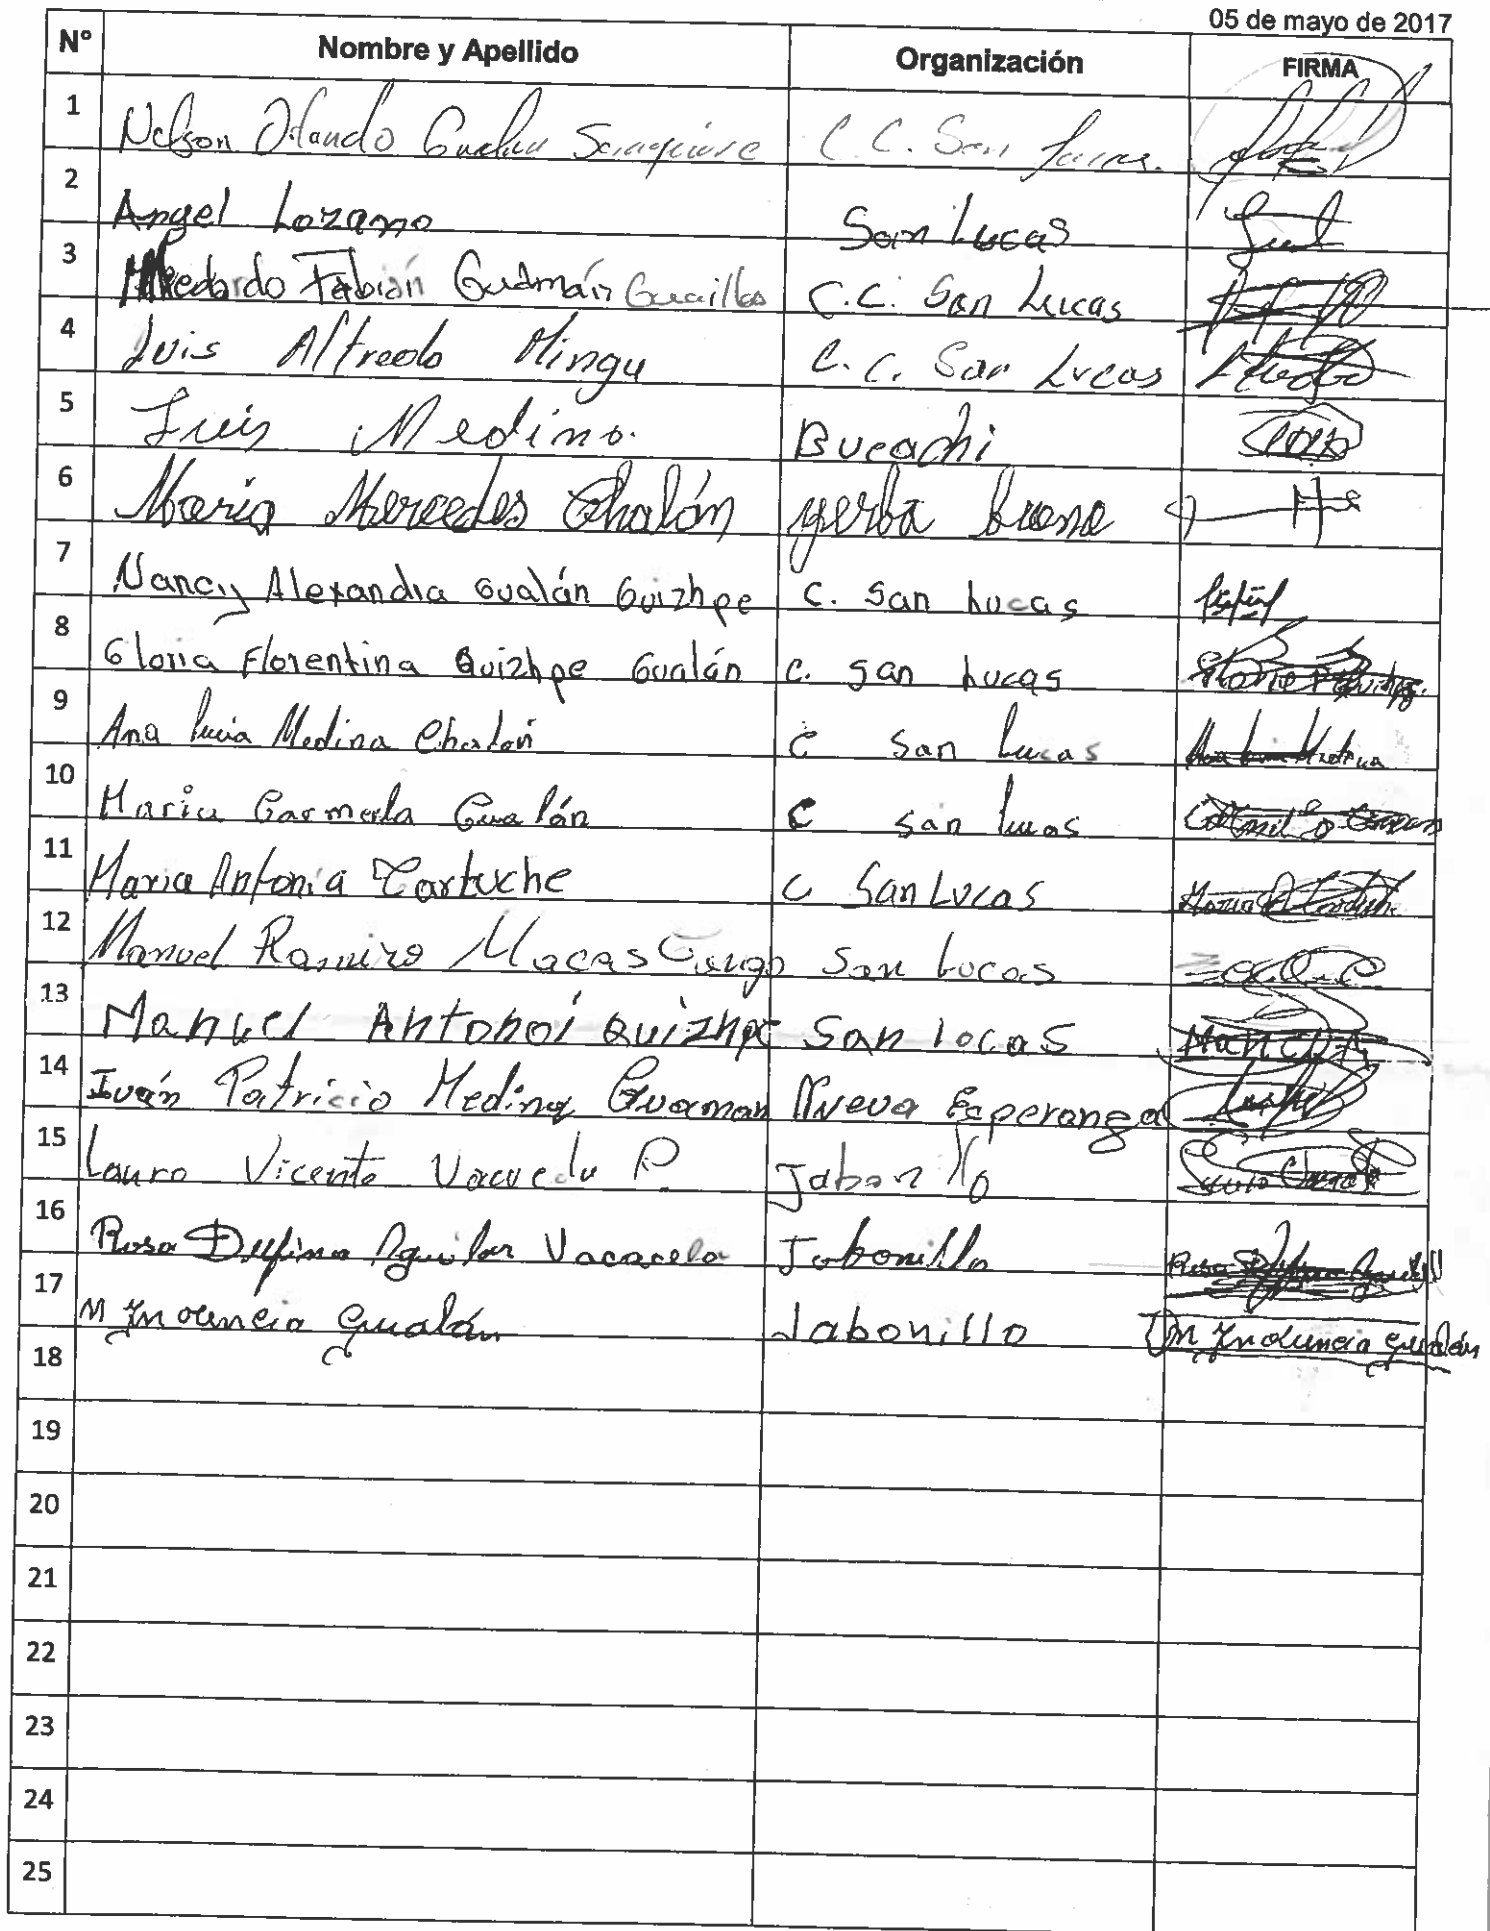 05 de mayo de 2017
N° Nombre y Apellido Organización FIRMA
1 Nelson Orlando C. C. San Lucas.
2 Angel Lozano San Lucas
3 Medardo Fabián Gudmán Guaillas C.C. San Lucas
4 Luis Alfredo Mingu C. C. San Lucas
5 Luis Medina. Bucachi
6 María Mercedes Chalán yerba buena
7 Nancy Alexandra Gualán Guizhpe C. San Lucas
8 Gloria Florentina Quizhpe Gualán C. San Lucas
9 Ana Lucia Medina Chalán C San Lucas Ana Lucia Medina
10 Maria Carmela Gualán C San Lucas
11 Maria Antonia Cartuche C San Lucas
12 Manuel Ramiro Macas San Lucas
13 Manuel Antonoi Quizhpe San locas
14 Iván Patricio Medina Guaman Nueva Esperanza
15 Lauro Vicente Vacacela P. Jabonillo
16 Rosa Delfina Aguilar Vacacela Jabonillo
17 M Inocencia Gualán Jabonillo M Inocencia Gualán
18
19
20
21
22
23
24
25